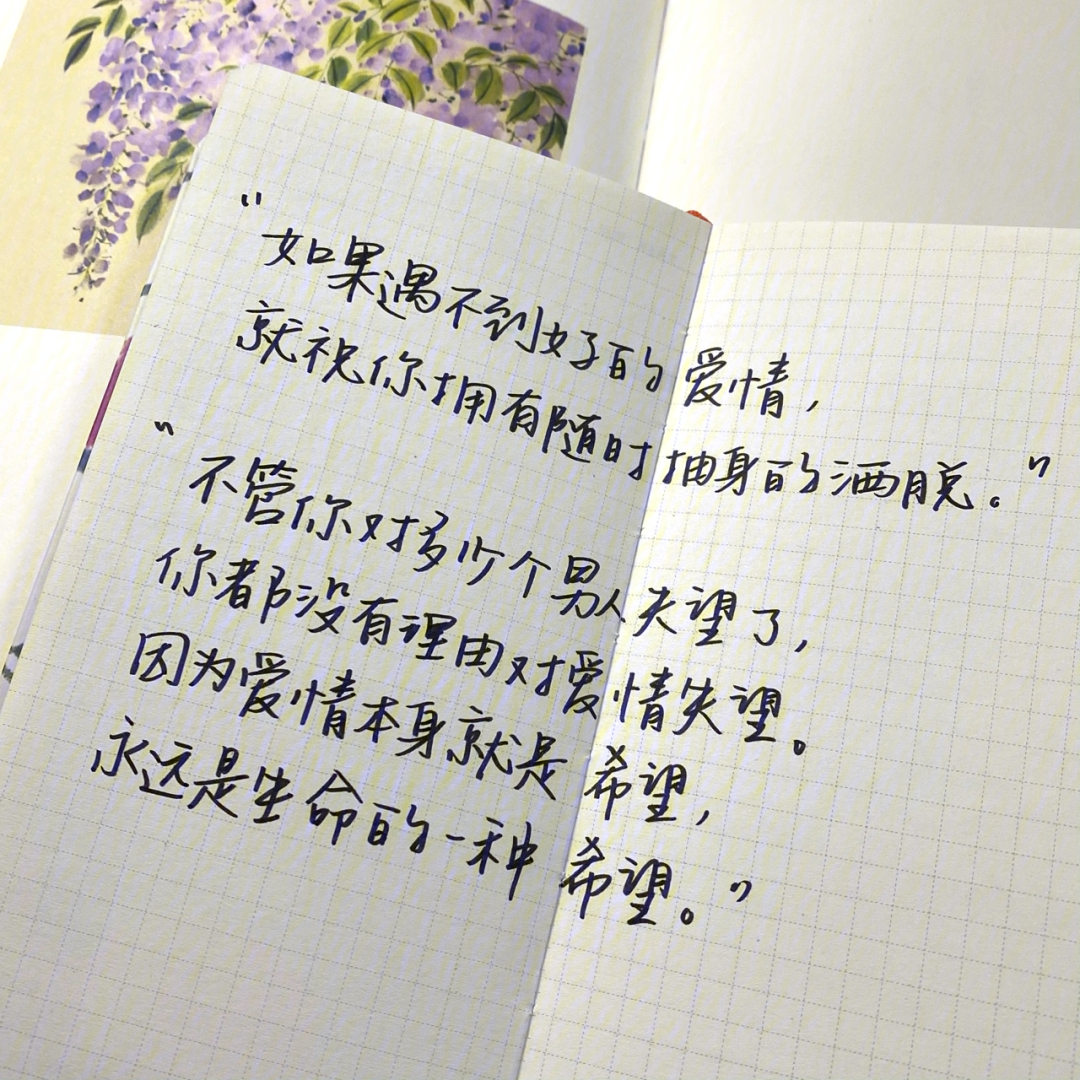 "如果遇不到好的爱情,
就祝你拥有随时抽身的洒脱。"
"不管你对多少个男人失望了,
你都没有理由对爱情失望。
因为爱情本身就是希望,
永远是生命的一种希望。"